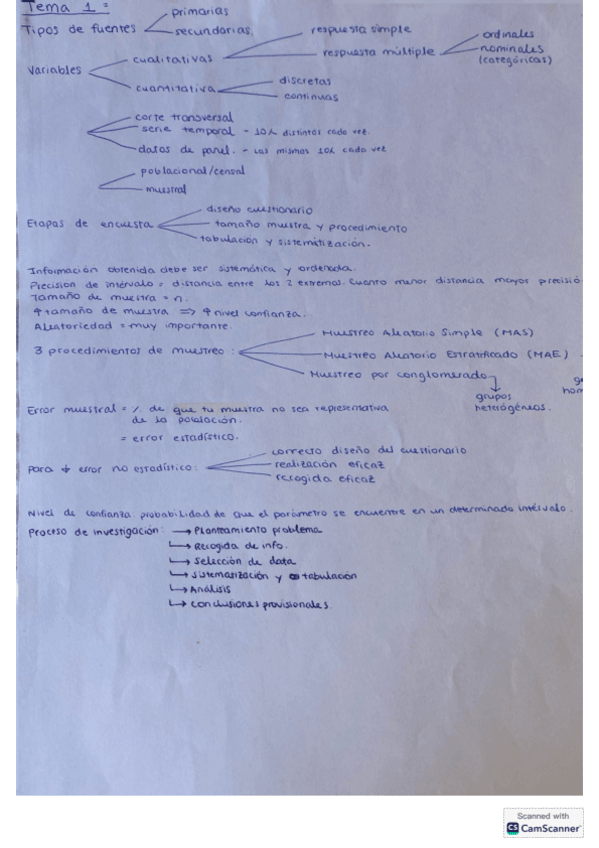 Tema 1:
Tipos de fuentes
primarias
secundarias.
Variables
cualitativas
respuesta simple
respuesta múltiple
ordinales
nominales
(categóricas)
cuantitativa
discretas
continuas
corte transversal
serie temporal - 10k distintos cada vez.
datos de panel. - Los mismos 10k cada vez
poblacional/censal
muestral
Etapas de encuesta
diseño cuestionario
tamaño muestra y procedimiento
tabulación y sistemitización.
Información obtenida debe ser sistemática y ordenada.
Precision de intérvalo = distancia entre los 2 extremos. Cuanto menor distancia mayor precisió
Tamaño de muestra = n.
↑ tamaño de muestra => ↑ nivel confianza.
Aleatoriedad = muy importante.
3 procedimientos de muestreo:
Muestreo Aleatorio Simple (MAS)
Muestreo Aleatorio Estratificado (MAE)
Muestreo por conglomerado
grupos
heterógéneos.
g
hom
Error muestral = % de que tu muestra no sea representativa
de la población.
= error estadístico.
Para ↓ error no estadístico:
correcto diseño del cuestionario
realización eficaz
recogida eficaz
Nivel de confianza: probabilidad de que el parámetro se encuentre en un determinado intérvalo.
Proceso de investigación: → Planteamiento problema
↳ Recogida de info.
↳ Selección de data
↳ Sistematización y tabulación
↳ Análisis
↳ Conclusiones provisionales.
Scanned with
CS CamScanner